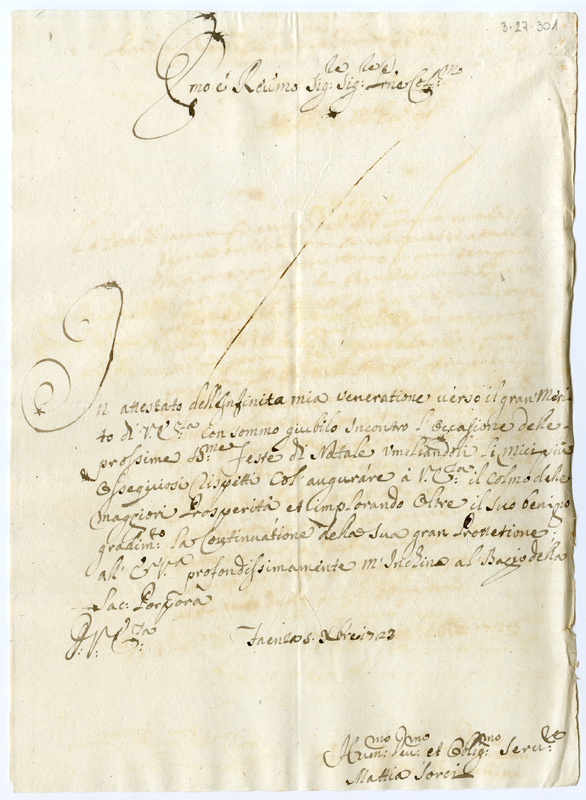 3-27-301
Emo e Reumo Sig:re Sig:re Pne Col:mo
In attestato dell'Infinita mia veneratione verso il gran Meri-
to di V. E:za con sommo giubilo Incontro l'Occasione delle
prossime SS:me Feste di Natale umiliandoli li miei più
Ossequiosi Rispetti Col' augurare à V. E:za il Colmo delle
maggiori Prosperità et implorando Oltre il suo benigno
gradim:to la Continuatione della sua gran Protettione;
all' E. V:a profondissimamente m'Inchino al Bacio della
Sac: Porpora
D. V. E:za
Faenza 5. Xbre 1723
Hum:mo Deu:mo et Oblig:mo Seru:re
Mattia Sorci